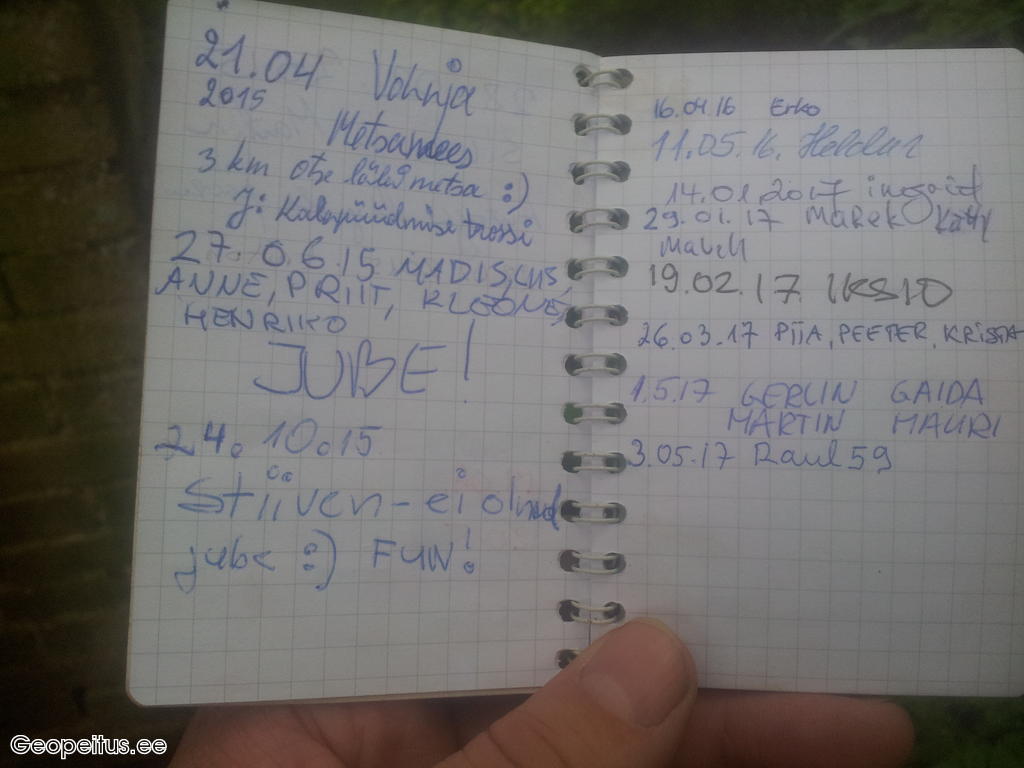 21.04 Vohnja
2015
Metsamees
3 km otse läbi metsa :)
J: Kalapüüdmise trossi
27.06.15 MADIS, LIIS,
ANNE, PRIIT, KLEONE,
HENRIKO
JUBE!
24.10.15
Stiiven - ei olnud
jube :) FUN!
16.04.16 Erko
11.05.16. Heldur
14.01.2017 ingoid
29.01.17 Marek Katy
19.02.17 IKS10
26.03.17 PIIA, PEETER, KRISTA
1.5.17 GERLIN GAIDA
MARTIN MAURI
3.05.17 Raul59
Geopeitus.ee